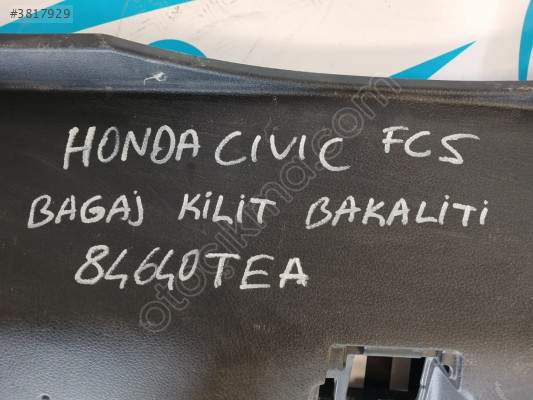 #3817929
HONDA CIVIC FC5
BAGAJ KİLİT BAKALİTİ
84640TEA
otocikma.com